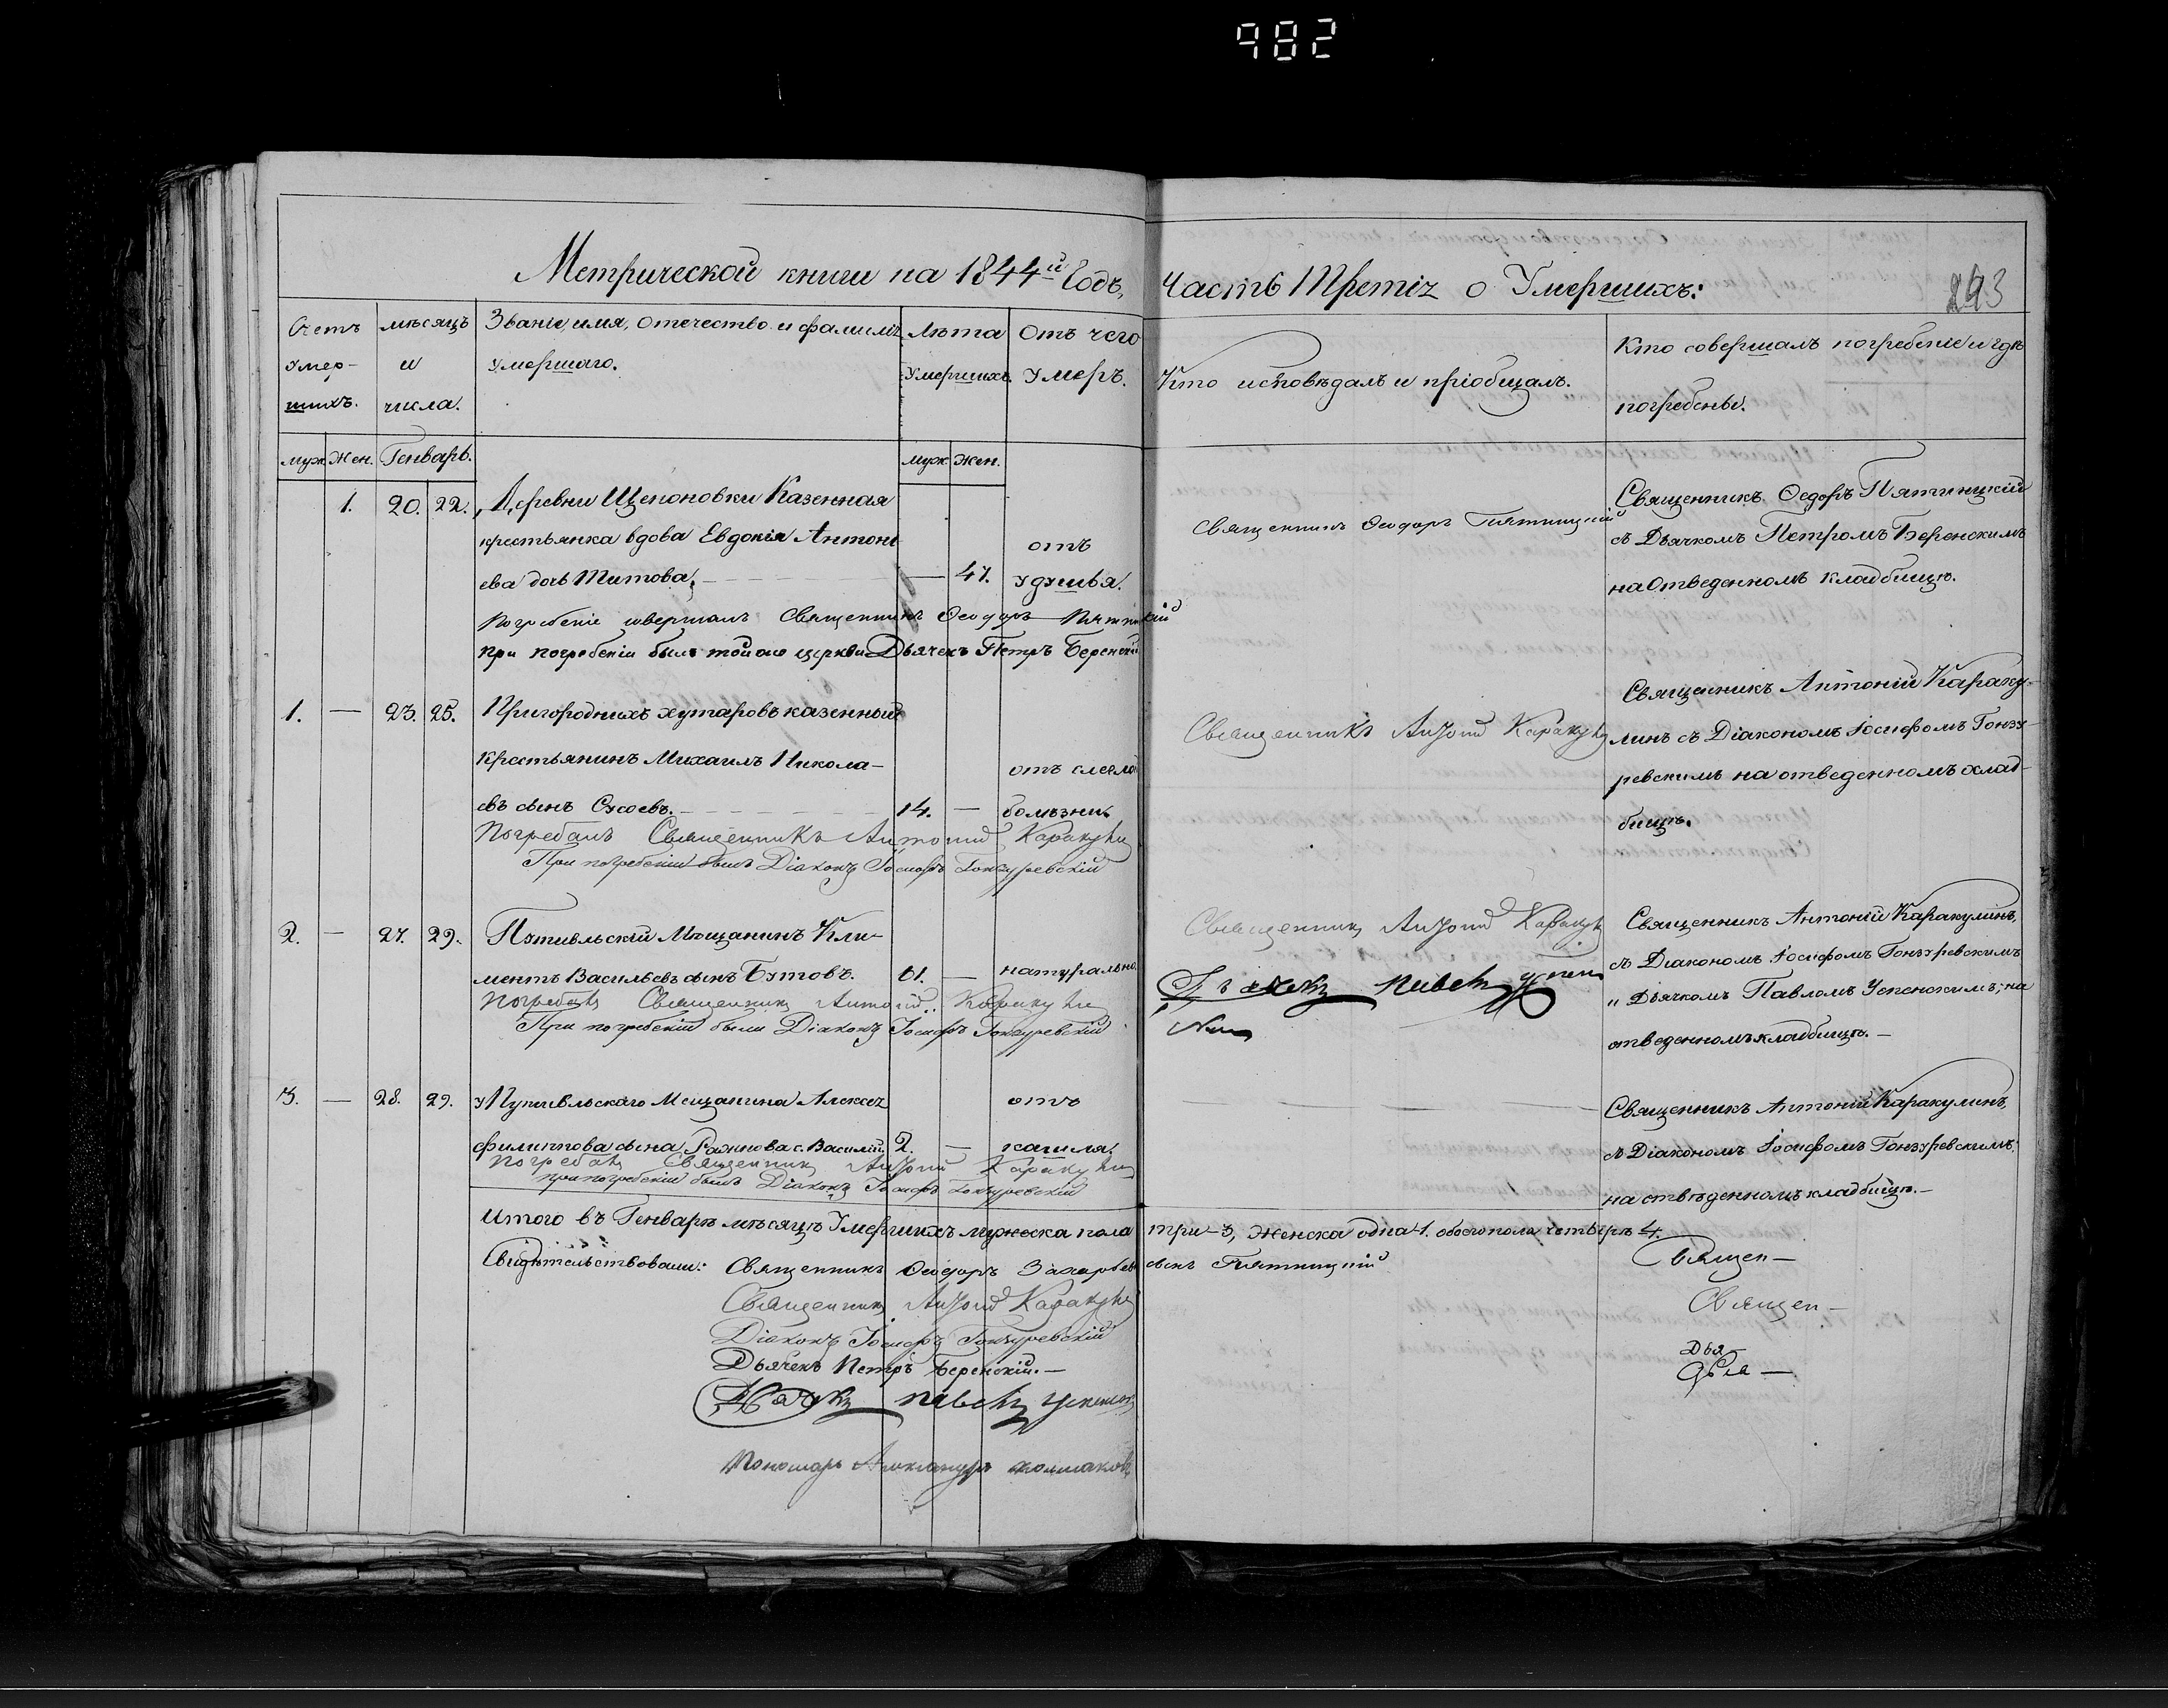 982
Метрической книги на 1844й Годъ,
Часть Третія о Умершихъ:
293
Счетъ умер-шихъ.
мѣсяцъ и числа.
Званіе, имя, отечество и фамилія умершаго.
Лѣта Умершихъ.
Отъ чего умеръ.
Кто исповѣдалъ и пріобщалъ.
Кто совершалъ погребеніе и гдѣ погребены.
муж. Жен. Генварь.
муж. жен.
1. 20. 22. Деревни Щепоновки Казенная
крестьянка вдова Евдокія Антоні
ева дочь Титова. — 47. отъ удушья.
Погребеніе совершалъ Священникъ Ѳеодоръ Пятницкій
при погребеніи былъ той же церкви Дьячекъ Петръ Беренскій
Священникъ Ѳеодоръ Пятницкій
Священникъ Ѳедоръ Пятницкій
съ Дьячкомъ Петромъ Беренскимъ
на отведенномъ кладбищѣ.
1. — 23. 25. Пригородныхъ хутаровъ казенный
крестьянинъ Михаилъ Никола-
евъ сынъ Сысоевъ. 14. —
болѣзни
Погребалъ Священникъ Антоній Каракулин
При погребеніи былъ Діаконъ Іосифъ Гонзуревскій
Священникъ Антоній Каракулин
Священникъ Антоній Караку-
линъ съ Діакономъ Іосифомъ Гонзу-
ревскимъ на отведенномъ клад-
бищѣ.
2. — 27. 29. Путивльскій Мѣщанинъ Кли-
ментъ Васильевъ сынъ Бутовъ. 61. — натурально.
Погребалъ Священникъ Антоній Каракулин
При погребеніи были Діаконъ Іосифъ Гонзуревскій
Священникъ Антоній Каракулин
Дьячекъ Павелъ Успен
Священникъ Антоній Каракулинъ,
съ Діакономъ Іосифомъ Гонзуревскимъ
и Дьячкомъ Павломъ Успенскимъ; на
отведенномъ кладбищѣ. —
3. — 28. 29. у Путивльскаго Мещанина Алексѣя
филиппова сына с. Василій, 2. — отъ кашля.
Погребалъ Священникъ Антоній Каракулин
при погребеніи былъ Діаконъ Іосифъ Гонзуревскій
Священникъ Антоній Каракулинъ,
съ Діакономъ Іосифомъ Гонзуревскимъ;
на отвѣденномъ кладбищѣ. —
Итого въ Генварѣ мѣсяцѣ Умершихъ мужеска пола три - 3, женска одна - 1. обоего пола четверо 4.
Свидѣтельствовали: Священникъ Ѳеодоръ Захарьевъ сынъ Пятницкій
Священ —
Священникъ Антоній Каракулин
Священ —
Діаконъ Іосифъ Гонзуревскій
Дьячекъ Петръ Беренскій. —
Дья —
Дьячекъ Павелъ Успенскій
Дья —
Пономарь Александръ